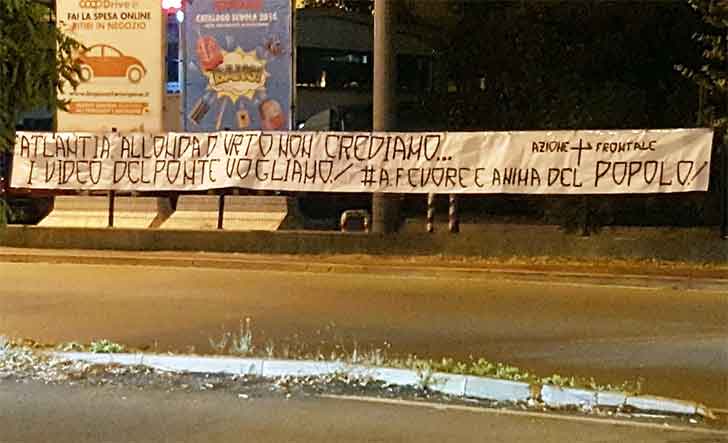 coop Drive
FAI LA SPESA ONLINE
RITIRI IN NEGOZIO
CATALOGO SCUOLA
ATLANTIA ALL'ONDA D'URTO NON CREDIAMO...
I VIDEO DEL PONTE VOGLIAMO!
AZIONE FRONTALE
#A.F CUORE E ANIMA DEL POPOLO!